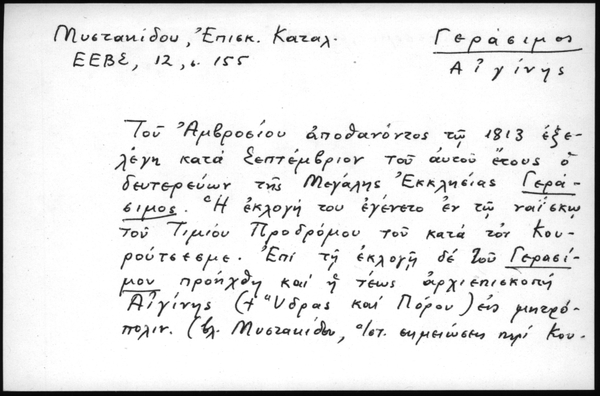 Μυστακίδου, Ἐπισκ. Καταλ.
ΕΕΒΣ, 12, σ. 155
Γεράσιμος
Αἰγίνης
Τοῦ Ἀμβροσίου ἀποθανόντος τῷ 1813 ἐξε-
λέγη κατά Σεπτέμβριον τοῦ αὐτοῦ ἔτους ὁ
δευτερεύων τῆς Μεγάλης Ἐκκλησίας Γερά-
σιμος. Ἡ ἐκλογή του ἐγένετο ἐν τῷ ναΐσκῳ
τοῦ Τιμίου Προδρόμου τοῦ κατά τόν Κου-
ρούτσεσμε. Ἐπί τῇ ἐκλογῇ δέ τοῦ Γερασί-
μου προήχθη καί ἡ τέως ἀρχιεπισκοπή
Αἰγίνης (+ Ὕδρας καί Πόρου) εἰς μητρό-
πολιν. (βλ. Μυστακίδου, σημειώσεις περί Κου-